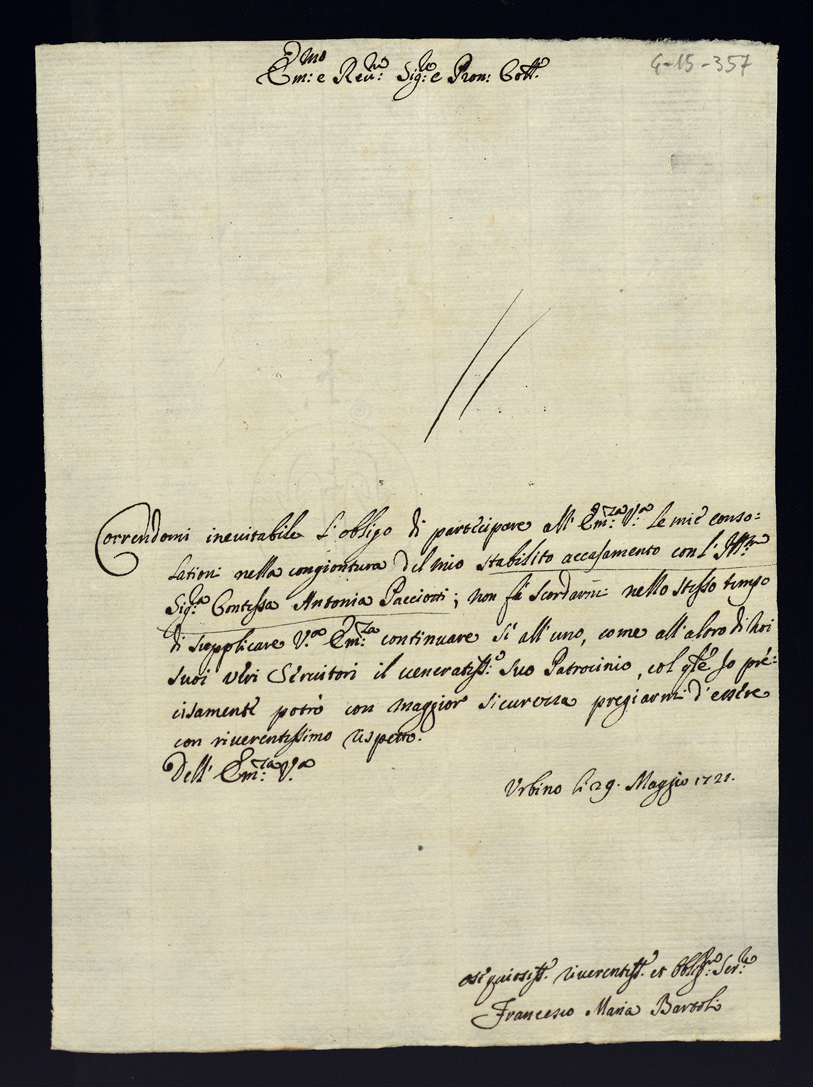 4-15-357
Em:mo e Reu:mo Sig:re e Pron: Coll:mo
Correndomi ineuitabile l'obligo di partecipare all' Em:za V:a le mie conso:
lationi nella congiontura del mio stabilito accasamento con l' Ill:ma
Sig:ra Contessa Antonia Pacciotti; non fà scordarmi nello stesso tempo
di supplicare V:a Em:za continuare sì all'uno, come all'altro di noi
suoi veri Seruitori il veneratiss:o suo Patrocinio, col q̃le Io pre:
cisamente potrò con maggior sicurezza pregiarmi d'essere
con riuerentissimo rispetto.
Dell' Em:za V:a
Vrbino li 29. Maggio 1721.
osequiosiss:o riuerentiss:o et oblig:mo Ser:re
Francesco Maria Bartoli